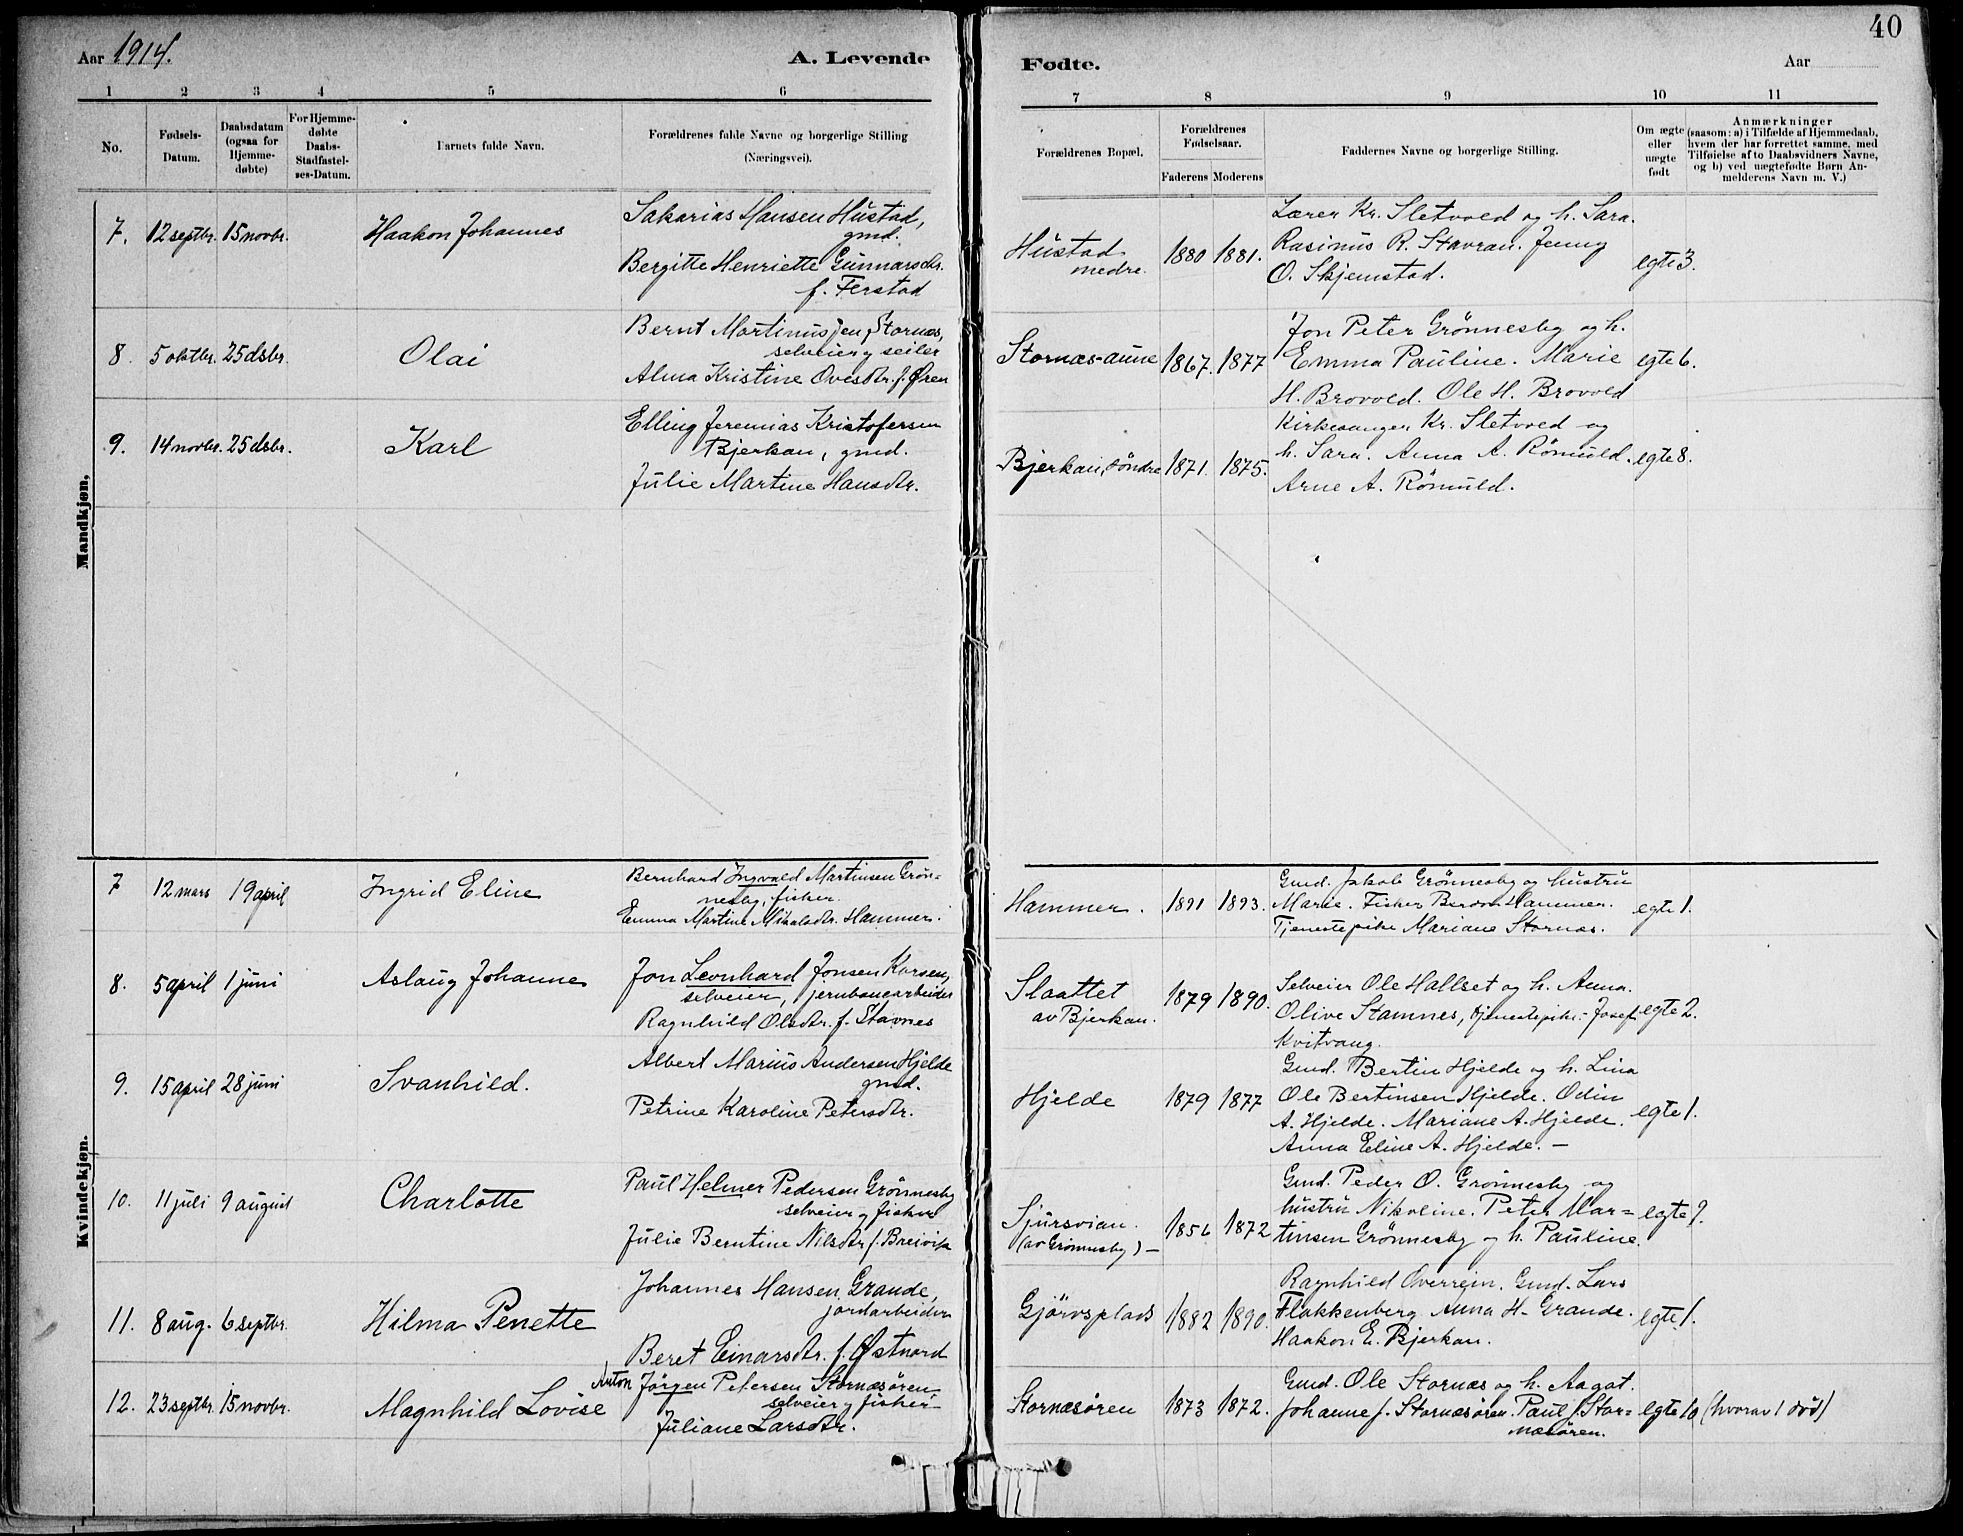 40
Aar 1914.
A. Levende
Fødte.
Aar
1 2 3 4 5 6
7 8 9 10 11
No.
Fødsels-
Datum.
Daabsdatum
(ogsaa for
Hjemme-
døbte)
For Hjemme-
døbte
Daabs-
Stadfastel-
ses-Datum.
Barnets fulde Navn.
Forældrenes fulde Navne og borgerlige Stilling
(Næringsvei).
Forældrenes Bopæl.
Forældrenes
Fødselsaar.
Faderens Moderens
Faddernes Navne og borgerlige Stilling.
Om ægte
eller
uægte
født
Anmærkninger
(saasom: a) i Tilfælde af Hjemmedaab,
hvem der har forrettet samme, med
Tilføielse af to Daabsvidners Navne,
og b) ved uægtefødte Børn An-
melderens Navn m. V.)
Mandkjøn.
7. 12 septbr. 15 novbr. Haakon Johannes
Sakarias Hansen Hustad,
gmd.
Bergitte Henriette Gunnarsdtr.
f. Ferstad
Hustad
nedre. 1880 1881.
Lærer Kr. Sletvold og h. Sara.
Rasinus R. Stavran. Jenny
O. Skjemstad.
egte 3.
8. 5 oktbr. 25 dsbr. Olai
Bernt Martinus Jens. Stornæs,
selveier og seiler
Alma Kristine Ovesdtr. f. Øren
Stornæs-aune 1867. 1877
Jon Peter Grönnesby og h.
Emma Pauline. Marie
H. Brovold. Ole H. Brovold
egte 6.
9. 14 novbr. 25 dsbr. Karl
Elling Jeremias Kristofersen
Bjerkan, gmd.
Julie Martine Hansdtr.
Bjerkan, söndre 1871. 1875.
Kirkesanger Kr. Sletvold og
h. Sara. Anna A. Römuld.
Arne A. Römuld.
egte 8.
Kvindekjøn.
7 12 mars 19 april Ingrid Eline
Bernhard Ingvald Martinsen Grön=
nesby, fisker.
Emma Martine Mikalsdtr. Hammer.
Hammer. 1891 1893.
Gmd. Jakob Grönnesby og hustru
Marie. Fisker Hammer.
Tjenestepike Mariane Stornæs.
egte 1.
8. 5 april 1 juni Aslaug Johanne
Jon Leonhard Jonsen Korsen,
selveier, jernbanearbeider
Ragnhild Olsdtr. f. Stavnes
Slaattet
av Bjerkan. 1879 1890.
Selveier Ole Hallset og h. Anna.
Olive Stamnes, tjenestepike. Josef
Kvitvang.
egte 2.
9. 15 april 28 juni Svanhild.
Albert Marius Andersen Hjelde
gmd.
Petrine Karoline Petersdtr.
Hjelde 1879 1877
Gmd. Bertin Hjelde og h. Lina
Ole Bertinsen Hjelde. Odin
A. Hjelde. Mariane A. Hjelde.
Anna Eline A. Hjelde. –
egte 1.
10. 11 juli 9 august Charlotte
Paul Helmer Pedersen Grönnesby
selveier og fisker
Julie Berntine Nilsdtr f. Breivik
Sjursvian.
(av Grönnesby) – 1856 1872
Gmd. Peder O. Grönnesby og
hustru Nikoline. Peter Mar=
tinsen Grönnesby og h. Pauline.
egte 9.
11. 8 aug. 6 septbr. Hilma Penette
Johannes Hansen Grande,
jordarbeider
Beret Einarsdtr. f. Østnord
Gjörvsplads 1882 1890.
Ragnhild Overrein. Gmd. Lars
Flakkenberg, Anna H. Grande.
Haakon E. Bjerkan.
egte 1.
12. 23 septbr. 15 novbr. Magnhild Lovise
Anton Jörgen Petersen Stornæsören
selveier og fisker
Juliane Larsdtr.
Stornæsören 1873 1872.
Gmd. Ole Stornæs og h. Aagot.
Johanne J. Stornæsören. Paul J. Stor=
næsören.
egte 10 (hvorav 1 död)